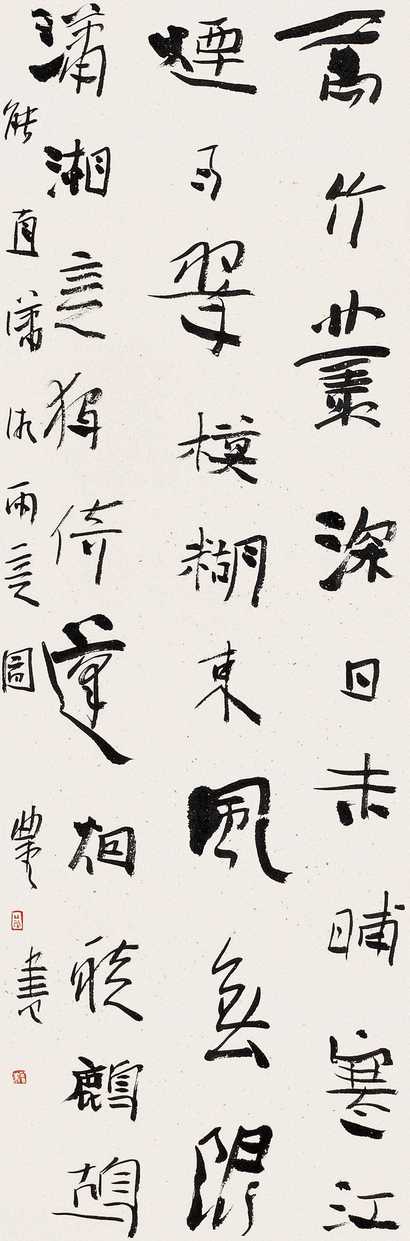 萬竹叢深日未晡寒江
煙雨翠模糊東風無限
瀟湘意獨倚蓬窗聽鷓鴣
熊直瀟湘雨意圖 書